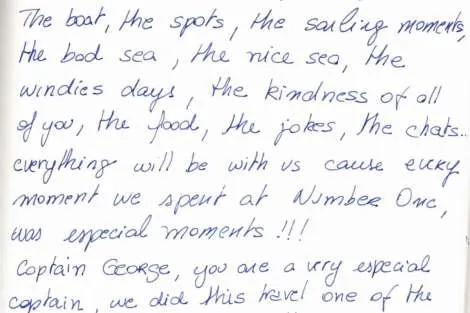 The boat, the spots, the sailing moments,
the bad sea, the nice sea, the
windies days, the kindness of all
of you, the food, the jokes, the chats...
everything will be with us cause every
moment we spent at Number One,
was especial moments!!!
Captain GEORGE, you are a very especial
captain, we did this travel one of the